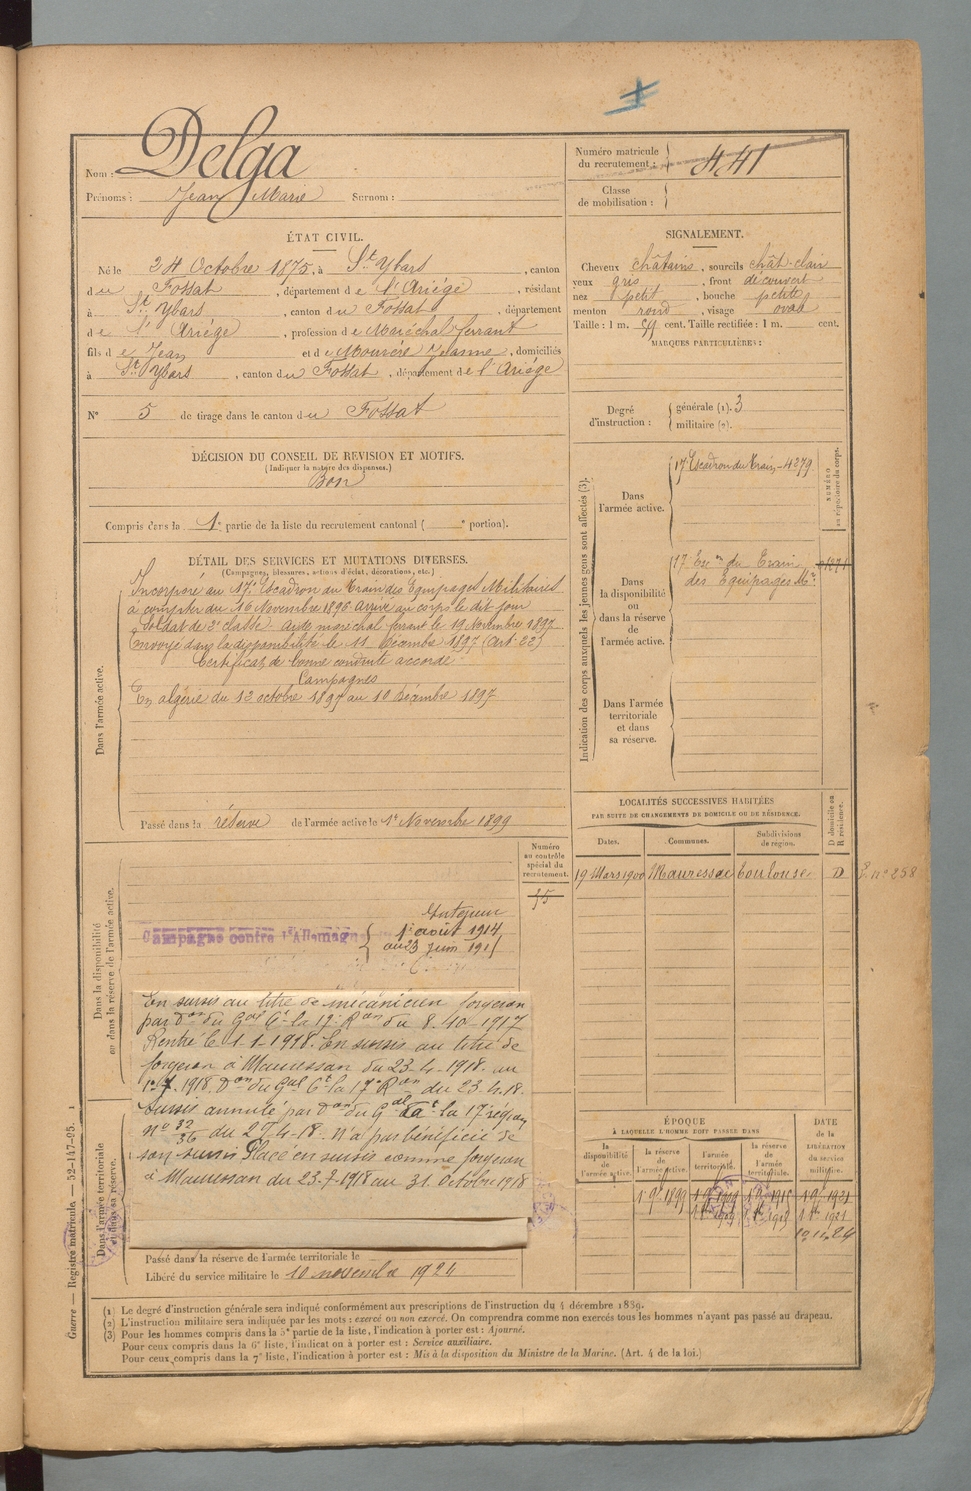 Nom : Delga
Prénoms : Jean Marie Surnom :
Numéro matricule
du recrutement : 441
Classe
de mobilisation :
ÉTAT CIVIL.
Né le 24 Octobre 1875, à St Ybars, canton
du Fossat, département de l'Ariège, résidant
à St Ybars, canton du Fossat, département
de l'Ariège, profession de Maréchal ferrant
fils de Jean et de Jeanne, domiciliés
à St Ybars, canton du Fossat, département de l'Ariège
N° 5 de tirage dans le canton du Fossat
SIGNALEMENT.
Cheveux châtains, sourcils chât-clair
yeux gris, front découvert
nez petit, bouche petite
menton rond, visage oval
Taille : 1 m. cent. Taille rectifiée : 1 m. cent.
MARQUES PARTICULIÈRES :
Degré
d'instruction :
générale (1). 3
militaire (2).
DÉCISION DU CONSEIL DE REVISION ET MOTIFS.
(Indiquer la nature des dispenses.)
Bon
Compris dans la 1e partie de la liste du recrutement cantonal ( e portion).
DÉTAIL DES SERVICES ET MUTATIONS DIVERSES.
(Campagnes, blessures, actions d'éclat, décorations, etc.)
Dans l'armée active.
Incorporé au 17e Escadron du Train des Equipages Militaires
à compter du 16 Novembre 1896. Arrivé au corps le dit jour
Soldat de 2e classe. Aide maréchal ferrant le 19 Novembre 1897
Envoyé dans la disponibilité le 11 Décembre 1897 (Art. 22)
Certificat de bonne conduite accordé.
Campagnes
En algérie du 12 octobre 1897 au 10 décembre 1897
Passé dans la réserve de l'armée active le 1er Novembre 1899
Indication des corps auxquels les jeunes gens sont affectés (3).
NUMÉRO
au répertoire du corps.
Dans
l'armée active.
17e Escadron du Train - 4279
Dans
la disponibilité
ou
dans la réserve
de
l'armée active.
17e Esc on du Train
des Equipages Mres
Dans l'armée
territoriale
et dans
sa réserve.
LOCALITÉS SUCCESSIVES HABITÉES
PAR SUITE DE CHANGEMENTS DE DOMICILE OU DE RÉSIDENCE.
Dates. Communes. Subdivisions
de région.
D domicile ou
R résidence.
19 Mars 1900 Mauressac Toulouse D
Numéro
au contrôle
spécial du
recrutement.
Dans la disponibilité
ou dans la réserve de l'armée active.
Campagne contre l'Allemagne
Intérieur
1er août 1914
En sursis au titre de mécanicien forgeron
par Don du Gal Ct la 17e Ron du 8-10-1917
Rentré le 1-1-1918. En sursis au titre de
forgeron à Mauressan du 23-4-1918 au
Don du Gal Ct la 17e Ron du 23.4.18.
Sursis annulé par Don du Gal Ct la 17e région
n° 32/36 du 27-4-18. N'a pas bénéficié de
son sursis Placé en sursis comme forgeron
à Mauressan du 23-7-1918 au 31 Octobre 1918
Dans l'armée territoriale
et dans sa réserve.
Passé dans la réserve de l'armée territoriale le
Libéré du service militaire le 10 novembre 1924
ÉPOQUE
À LAQUELLE L'HOMME DOIT PASSER DANS
DATE
de la
LIBÉRATION
du service
militaire.
la
disponibilité
de
l'armée active.
la réserve
de
l'armée active.
l'armée
territoriale.
la réserve
de
l'armée
territoriale.
(1) Le degré d'instruction générale sera indiqué conformément aux prescriptions de l'instruction du 4 décembre 1889.
(2) L'instruction militaire sera indiquée par les mots : exercé ou non exercé. On comprendra comme non exercés tous les hommes n'ayant pas passé au drapeau.
(3) Pour les hommes compris dans la 5e partie de la liste, l'indication à porter est : Ajourné.
Pour ceux compris dans la 6e liste, l'indication à porter est : Service auxiliaire.
Pour ceux compris dans la 7e liste, l'indication à porter est : Mis à la disposition du Ministre de la Marine. (Art. 4 de la loi.)
Guerre — Registre matricule. — 52-147-95.